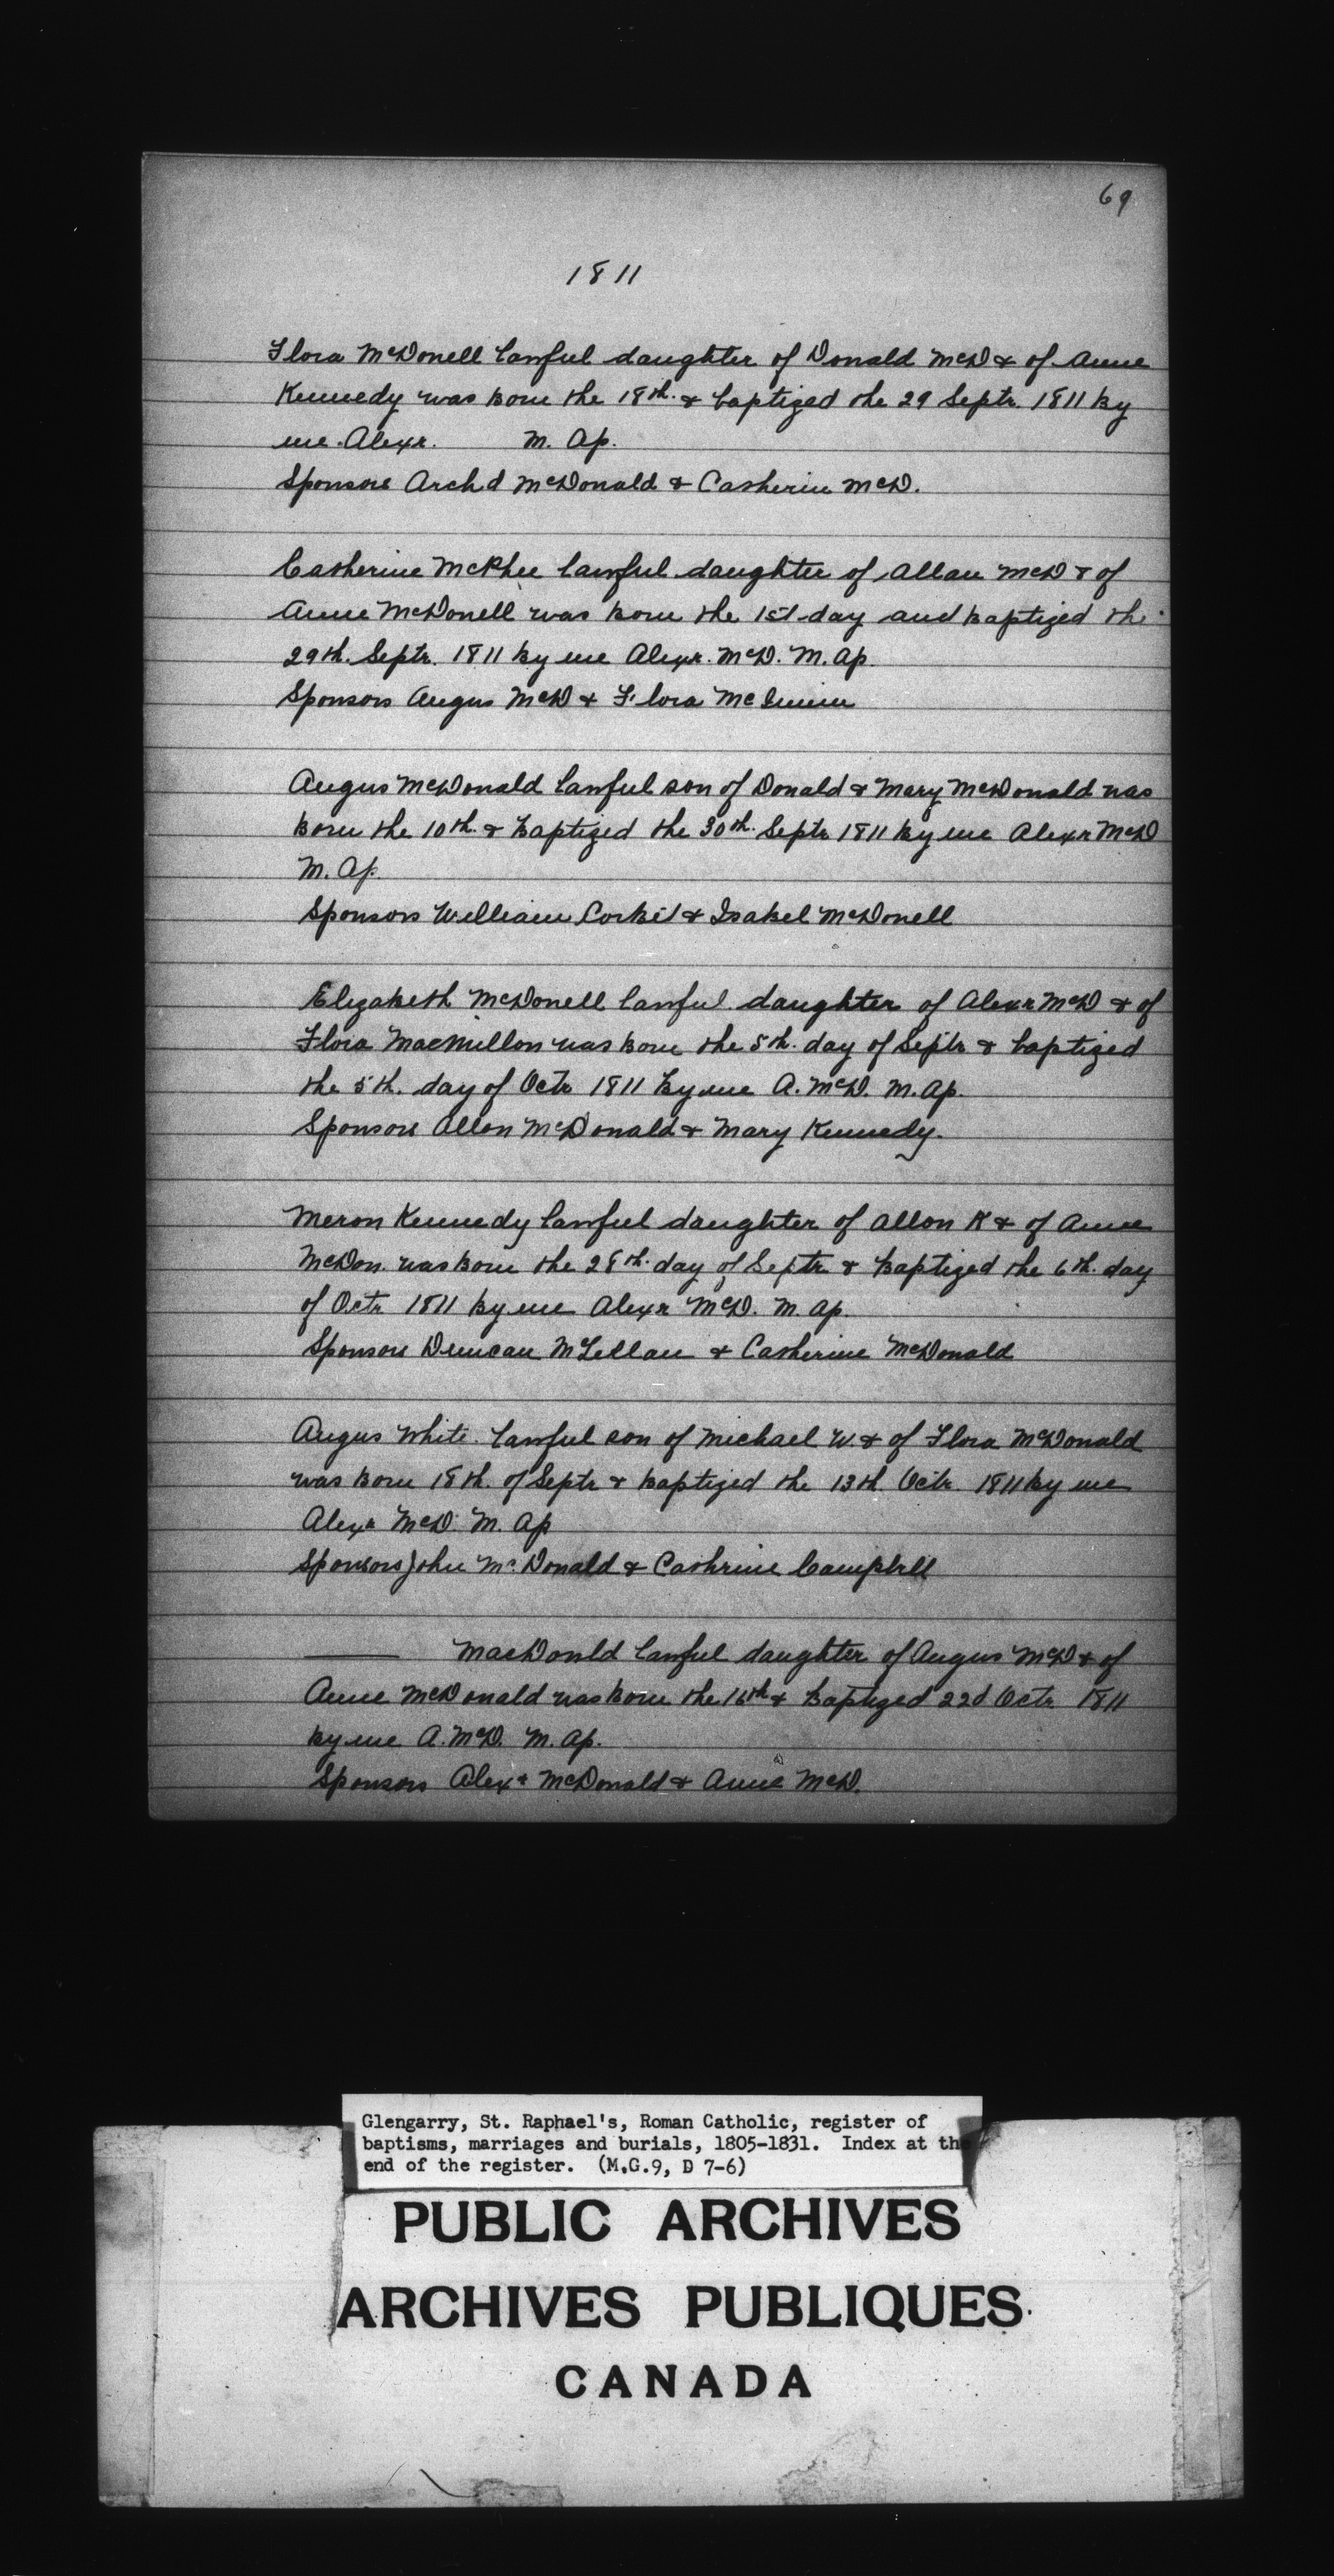 69
1811
Flora McDonell lawful daughter of Donald McD & of Anne
Kennedy was born the 18th. & baptized the 29 Septr. 1811 by
me Alexr. M. Ap.
Sponsors Archd McDonald & Catherine McD.
Catherine McPhee lawful daughter of Allan McD & of
Anne McDonell was born the 1st day and baptized the
29th. Septr. 1811 by me Alexr. McD. M. Ap.
Sponsors Angus McD & Flora
Angus McDonald lawful son of Donald & Mary McDonald was
born the 10th. & baptized the 30th. Septr 1811 by me Alexr McD
M. Ap.
Sponsors William Corbit & Isabel McDonell
Elizabeth McDonell lawful daughter of Alexr McD & of
Flora MacMillon was born the 5th. day of Septr & baptized
the 5th. day of Octr 1811 by me A. McD. M. Ap.
Sponsors Allon McDonald & Mary Kennedy.
Meron Kennedy lawful daughter of Allon K & of Anne
McDon. was born the 28th. day of Septr & baptized the 6th. day
of Octr 1811 by me Alexr McD. M. Ap.
Sponsors Duncan McLellan & Catherine McDonald
Angus White lawful son of Michael W. & of Flora McDonald
was born 18th. of Septr & baptized the 13th Octr. 1811 by me
Alexr McD. M. Ap
Sponsors John McDonald & Cathrine Campbell
——— MacDonld lawful daughter of Angus McD & of
Anne McDonald was born the 16th & baptized 22d Octr. 1811
by me A. McD. M. Ap.
Sponsors Alexr McDonald & Anne McD.
Glengarry, St. Raphael's, Roman Catholic, register of
baptisms, marriages and burials, 1805-1831. Index at the
end of the register. (M.G.9, D 7-6)
PUBLIC ARCHIVES
ARCHIVES PUBLIQUES
CANADA